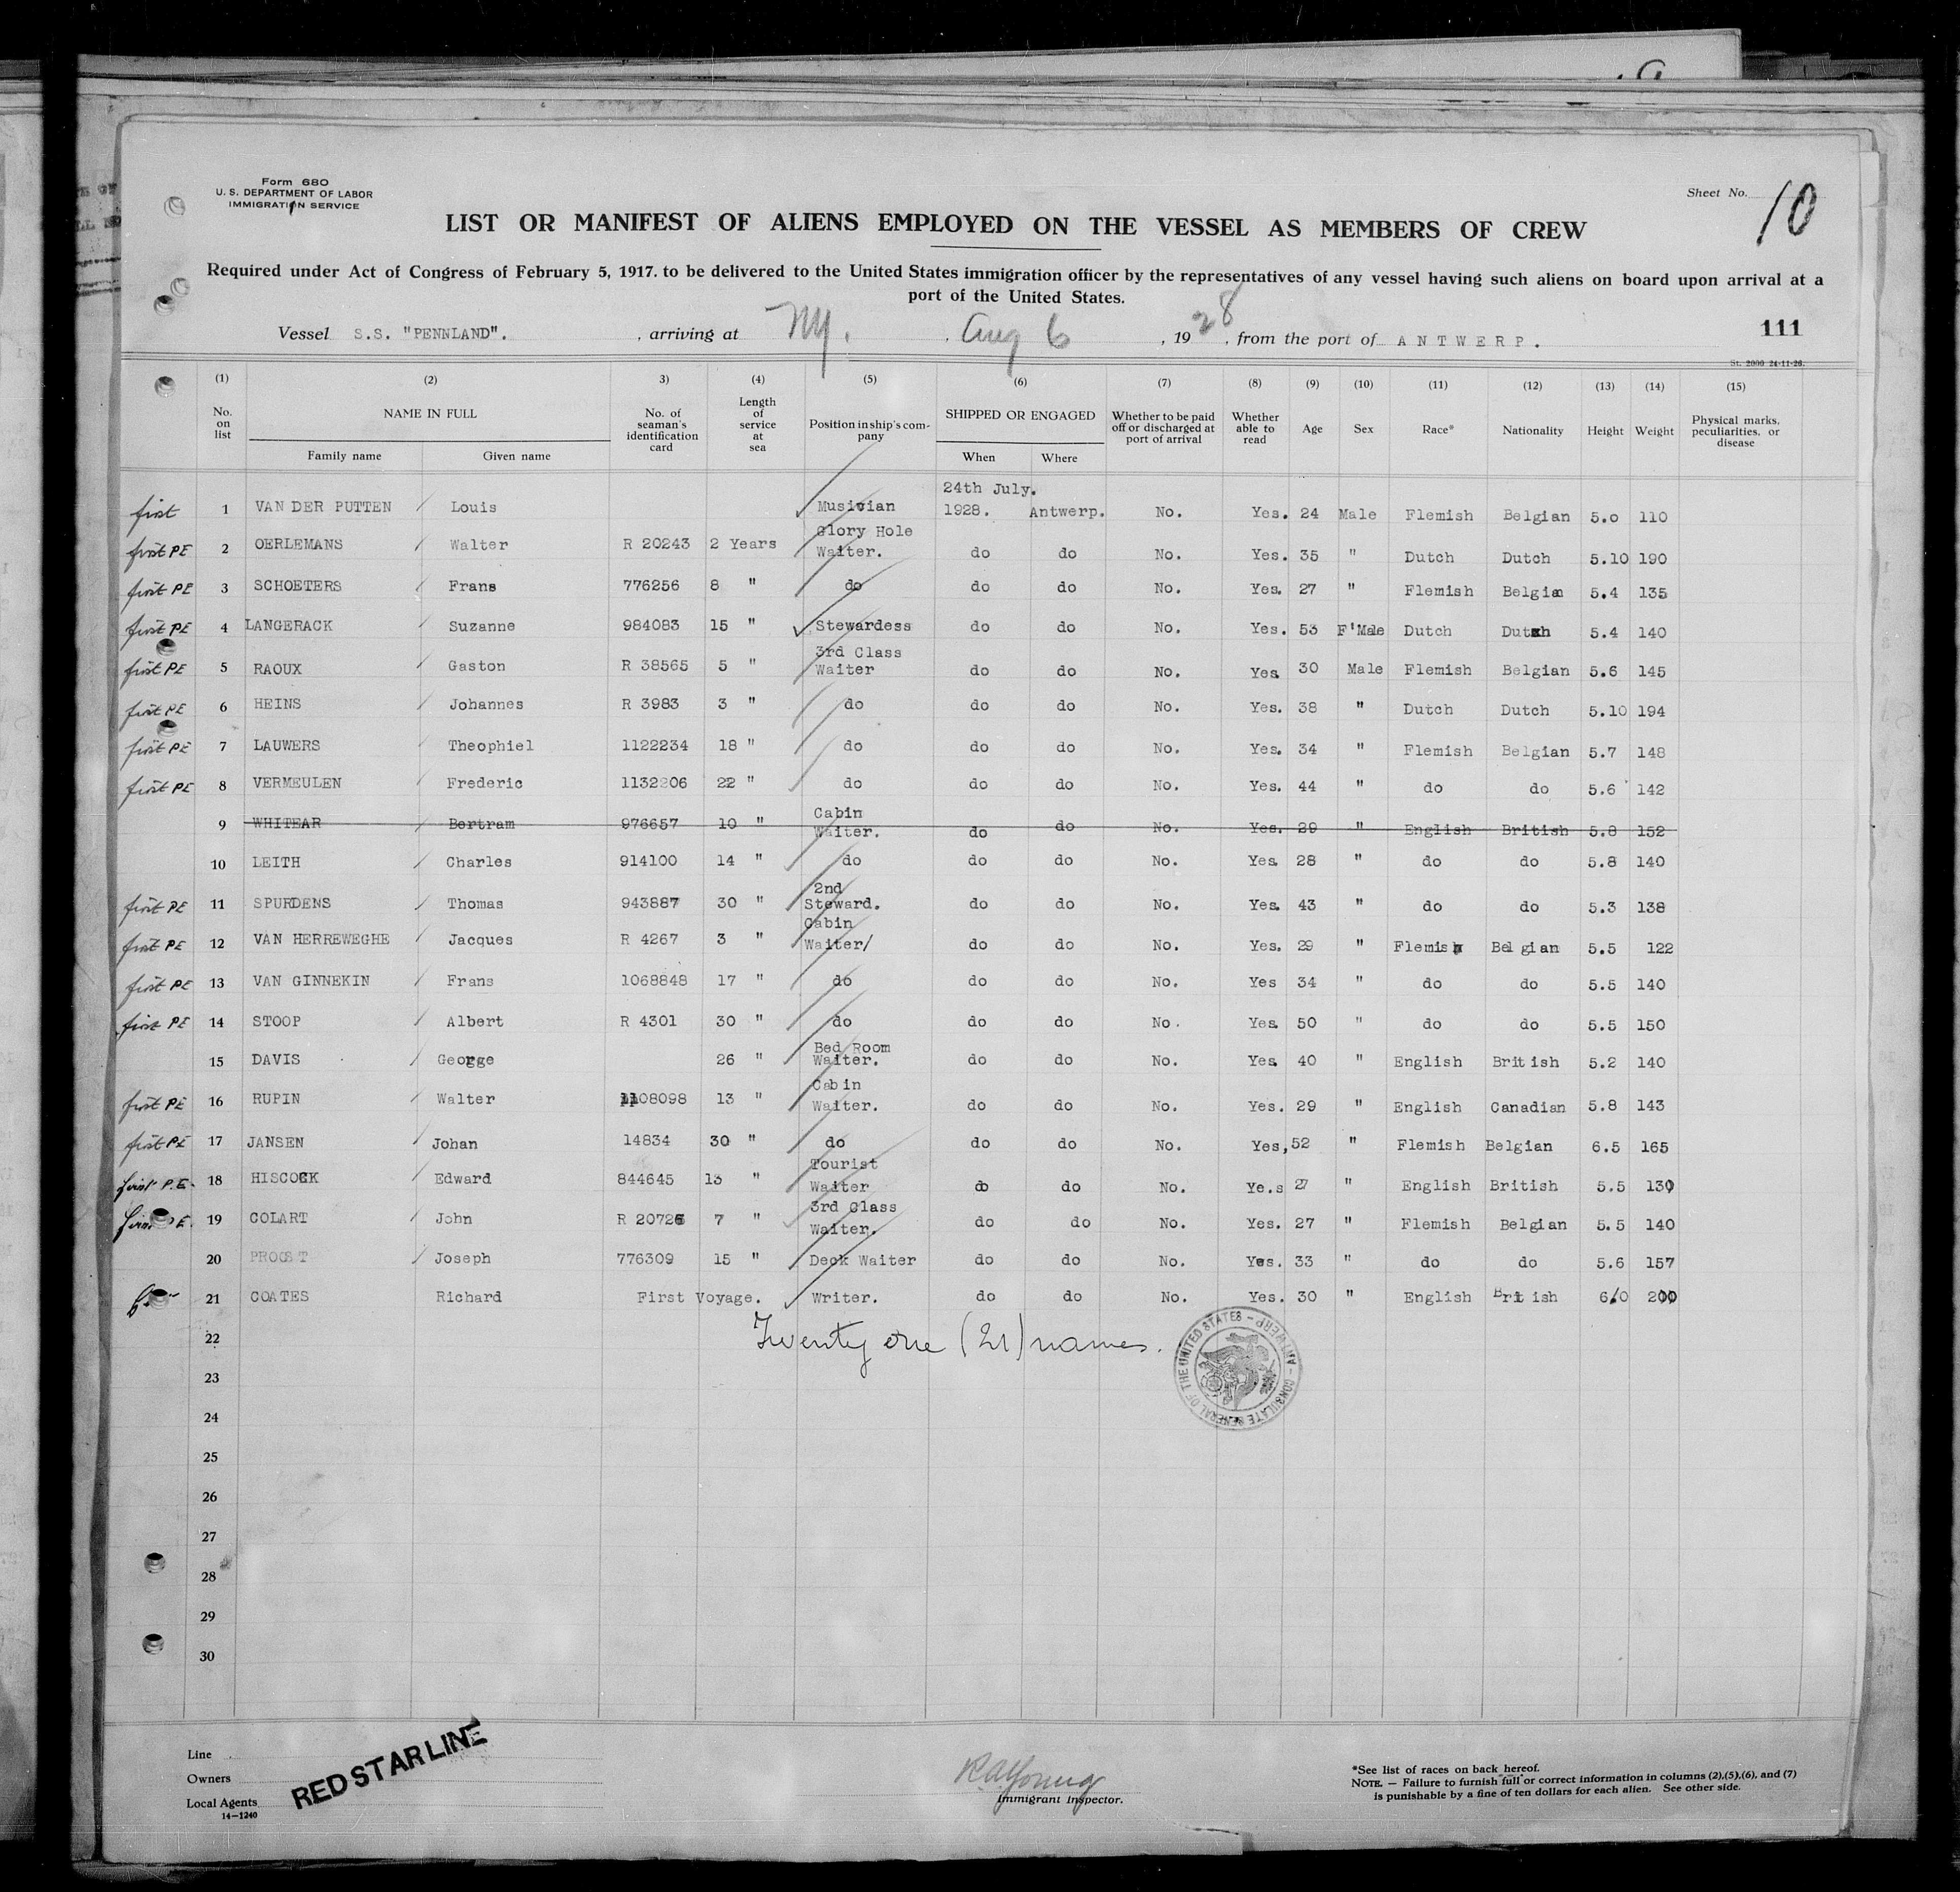 Form 680
U. S. DEPARTMENT OF LABOR
IMMIGRATION SERVICE
Sheet No. 10
LIST OR MANIFEST OF ALIENS EMPLOYED ON THE VESSEL AS MEMBERS OF CREW
Required under Act of Congress of February 5, 1917. to be delivered to the United States immigration officer by the representatives of any vessel having such aliens on board upon arrival at a
port of the United States.
Vessel S.S. "PENNLAND". , arriving at NY. , Aug 6 , 1928 , from the port of ANTWERP.
111
St. 2000 24-11-26.
(1) (2) 3) (4) (5) (6) (7) (8) (9) (10) (11) (12) (13) (14) (15)
No. on list NAME IN FULL No. of seaman's identification card Length of service at sea Position in ship's company SHIPPED OR ENGAGED Whether to be paid off or discharged at port of arrival Whether able to read Age Sex Race* Nationality Height Weight Physical marks, peculiarities, or disease
Family name Given name When Where
first 1 VAN DER PUTTEN / Louis Musivian 24th July. 1928. Antwerp. No. Yes. 24 Male Flemish Belgian 5.0 110
first PE 2 OERLEMANS / Walter R 20243 2 Years Glory Hole Waiter. do do No. Yes. 35 " Dutch Dutch 5.10 190
first PE 3 SCHOETERS / Frans 776256 8 " do do do No. Yes. 27 " Flemish Belgian 5.4 135
first PE 4 LANGERACK / Suzanne 984083 15 " Stewardess do do No. Yes. 53 F'Male Dutch Dutch 5.4 140
first PE 5 RAOUX / Gaston R 38565 5 " 3rd Class Waiter do do No. Yes 30 Male Flemish Belgian 5.6 145
first PE 6 HEINS / Johannes R 3983 3 " do do do No. Yes. 38 " Dutch Dutch 5.10 194
first PE 7 LAUWERS / Theophiel 1122234 18 " do do do No. Yes. 34 " Flemish Belgian 5.7 148
first PE 8 VERMEULEN / Frederic 1132206 22 " do do do No. Yes. 44 " do do 5.6 142
9 WHITEAR / Bertram 976657 10 " Cabin Waiter. do do No. Yes. 29 " English British 5.8 152
10 LEITH / Charles 914100 14 " do do do No. Yes 28 " do do 5.8 140
first PE 11 SPURDENS / Thomas 943887 30 " 2nd Steward. do do No. Yes. 43 " do do 5.3 138
first PE 12 VAN HERREWEGHE / Jacques R 4267 3 " Cabin Waiter/ do do No. Yes. 29 " Flemish Belgian 5.5 122
first PE 13 VAN GINNEKIN / Frans 1068848 17 " do do do No. Yes 34 " do do 5.5 140
first PE 14 STOOP / Albert R 4301 30 " do do do No. Yes. 50 " do do 5.5 150
15 DAVIS / George 26 " Bed Room Waiter. do do No. Yes 40 " English British 5.2 140
first PE 16 RUPIN / Walter 1108098 13 " Cabin Waiter. do do No. Yes. 29 " English Canadian 5.8 143
first PE 17 JANSEN / Johan 14834 30 " do do do No. Yes, 52 " Flemish Belgian 6.5 165
first P.E. 18 HISCOCK / Edward 844645 13 " Tourist Waiter do do No. Ye.s 27 " English British 5.5 139
19 COLART / John R 20726 7 " 3rd Class Waiter. do do No. Yes. 27 " Flemish Belgian 5.5 140
20 PROOST / Joseph 776309 15 " Deck Waiter do do No. Yes. 33 " do do 5.6 157
21 COATES Richard First Voyage. Writer. do do No. Yes. 30 " English British 6.0 200
22 Twenty one (21) names.
CONSULATE GENERAL OF THE UNITED STATES - ANTWERP -
23
24
25
26
27
28
29
30
Line
Owners
Local Agents
14-1240
RED STAR LINE
R.A. Young
Immigrant Inspector.
*See list of races on back hereof.
NOTE. — Failure to furnish full or correct information in columns (2),(5),(6), and (7)
is punishable by a fine of ten dollars for each alien. See other side.